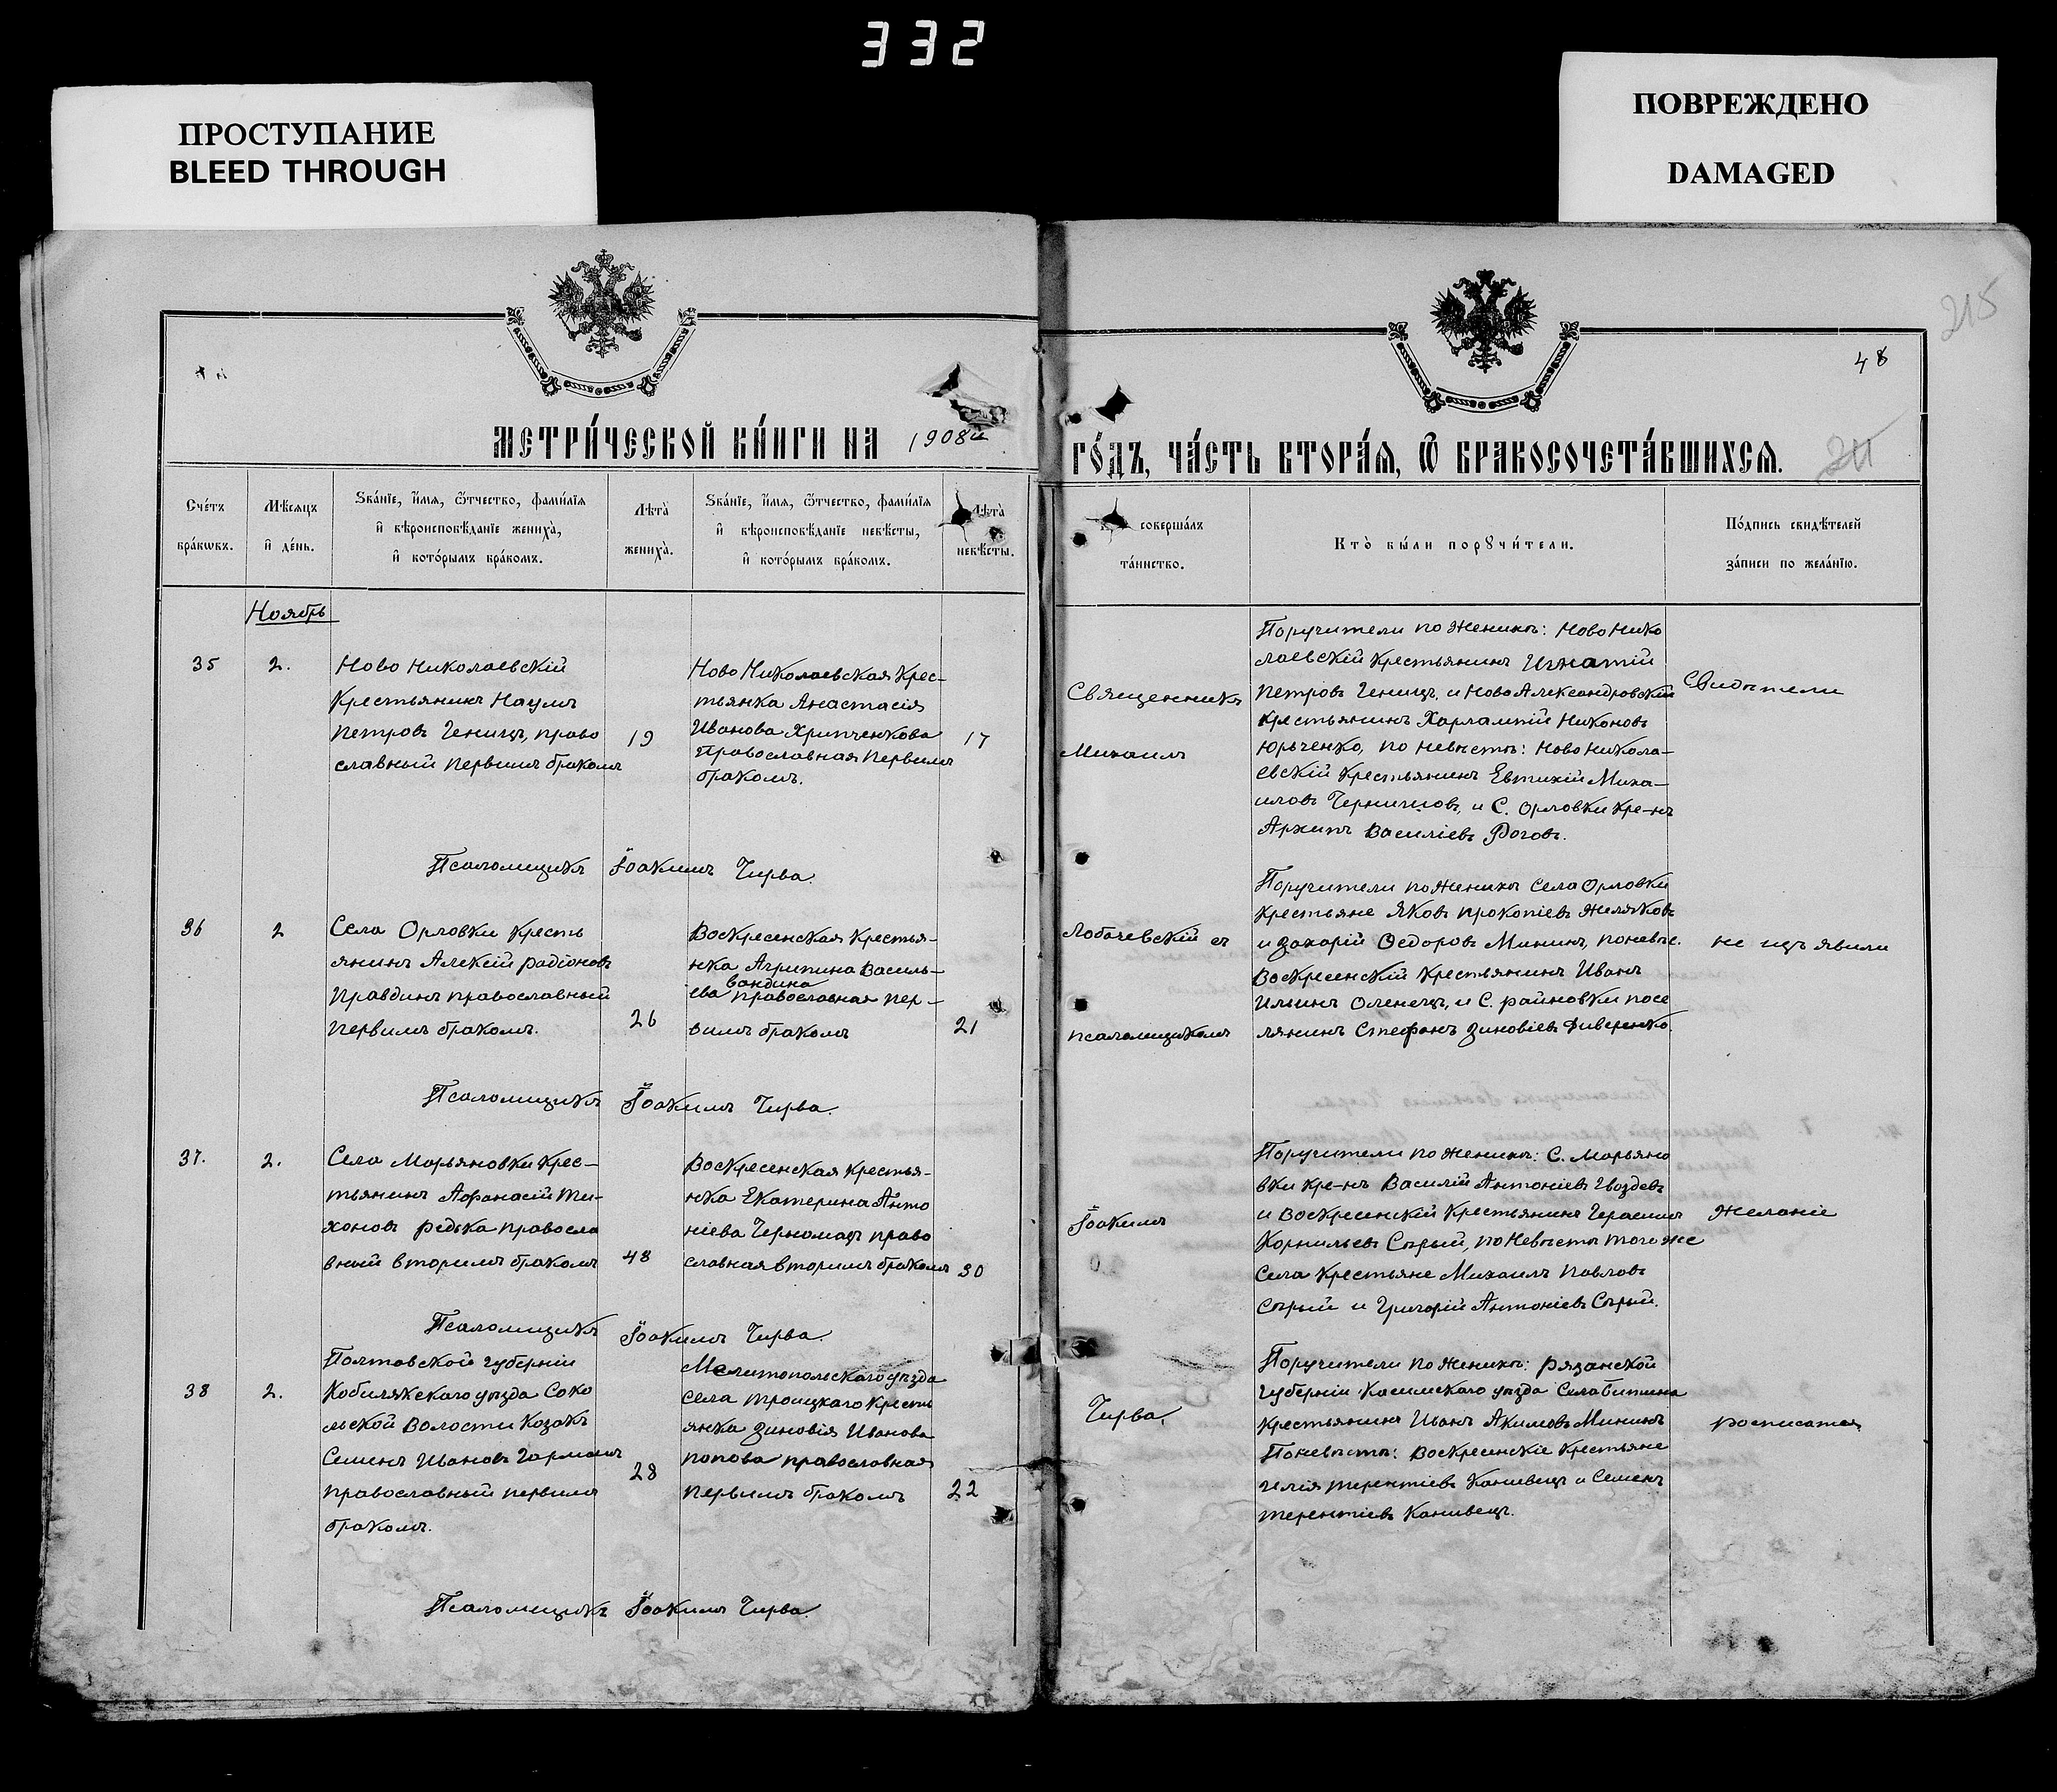 332
ПРОСТУПАНИЕ
BLEED THROUGH
ПОВРЕЖДЕНО
DAMAGED
215
48
МЕТРИ́ЧЕСКОЙ КНИ́ГИ НА 1908й
ГО́ДЪ, ЧА́СТЬ ВТОРА́Ѧ, Ѽ БРАКОСОЧЕТА́ВШИХСѦ.
211
Сче́тъ
бра́кѡвъ.
Мѣ́сяцъ
и҆ де́нь.
Ѕва́нїе, и҆́мѧ, ѻ҆́тчество, фами́лїѧ
и҆ вѣроисповѣ́данїе жениха̀,
и҆ кото́рымъ бра́комъ.
Лѣ́та
жениха̀.
Ѕва́нїе, и҆́мѧ, ѻ҆́тчество, фами́лїѧ
и҆ вѣроисповѣ́данїе невѣ́сты,
и҆ кото́рымъ бра́комъ.
Лѣ́та
невѣ́сты.
соверша́лъ
та́инство.
Кто̀ бы́ли порꙋчи́тели.
По́дпись свидѣ́телей
за́писи по жела́нїю.
Ноябрь
35
2.
Ново Николаевскій
Крестьянинъ Наумъ
Петровъ Геницъ, право
славный первимъ бракомъ
19
Ново Николаевская Крес-
тьянка Анастасія
Иванова Хрипченкова
Православная Первимъ
бракомъ.
17
Священникъ
Михаилъ
Поручители по женихѣ: Ново Нико
лаевскій Крестьянинъ Игнатій
Петровъ Геницъ, и Ново Александровскій
крестьянинъ Харлампій Никоновъ
Юрьченко, по невѣстѣ: Ново Никола-
евскій Крестьянинъ Евтихій Миха-
иловъ Чернишовъ, и С. Орловки кре-нъ
Архипъ Василіевъ Роговъ.
Свидѣтели
Псаломщикъ Іоакимъ Чирва.
36
2
Села Орловки Кресть
янинъ Алексій Радіоновъ
Правдинъ православный
первимъ бракомъ.
26
Воскресенская Крестья-
нка Агрипина Василь-
вандина
ева православная пер-
вимъ бракомъ
21
Лобачевскій съ
псаломщикомъ
Поручители по женихѣ Села Орловки
крестьяне Яковъ Прокопіевъ Желяковъ
и Захарій Ѳедоровъ Мининъ, по невѣс.
Воскресенскій Крестьянинъ Иванъ
Ильинъ Оленецъ, и С. Райновки посе
лянинъ Стефанъ Зиновіевъ Диверенко.
не изъявили
Псаломщикъ Іоакимъ Чирва.
37.
2.
Села Марьяновки Крес-
тьянинъ Афанасій Ти-
хоновъ Редька правосла
вный вторимъ бракомъ
48
Воскресенская Крестья-
нка Екатерина Анто
ніева Черномазъ право
славная вторимъ бракомъ
30
Іоакимъ
Поручители по женихѣ: С. Марьяно
вки кре-нъ Василій Антоніевъ Гвоздевъ
и Воскресенскій Крестьянинъ Герасимъ
Корнильевъ Сѣрый, по невѣстѣ того же
Села Крестьяне Михаилъ Павловъ
Сѣрый и Григорій Антоніевъ Сѣрый.
желаніе
Псаломщикъ Іоакимъ Чирва.
38
2.
Полтавской губерніи
Кобилякскаго уѣзда Соко
льской Волости Козакъ
Семенъ Ивановъ Гармашъ
православный первимъ
бракомъ.
28
Мелитопольскаго уѣзда
села Троицкаго Кресть
янка Зиновія Иванова
Попова православная
первимъ бракомъ
22
Чирва.
Поручители по женихѣ: Рязанской
губерніи Касимскаго уѣзда Села
крестьянинъ Иванъ Акимовъ Мининъ
По невѣстѣ: Воскресенскіе Крестьяне
Илія Терентіевъ Канивецъ и Семенъ
Терентіевъ Канивецъ.
росписатся
Псаломщикъ Іоакимъ Чирва.